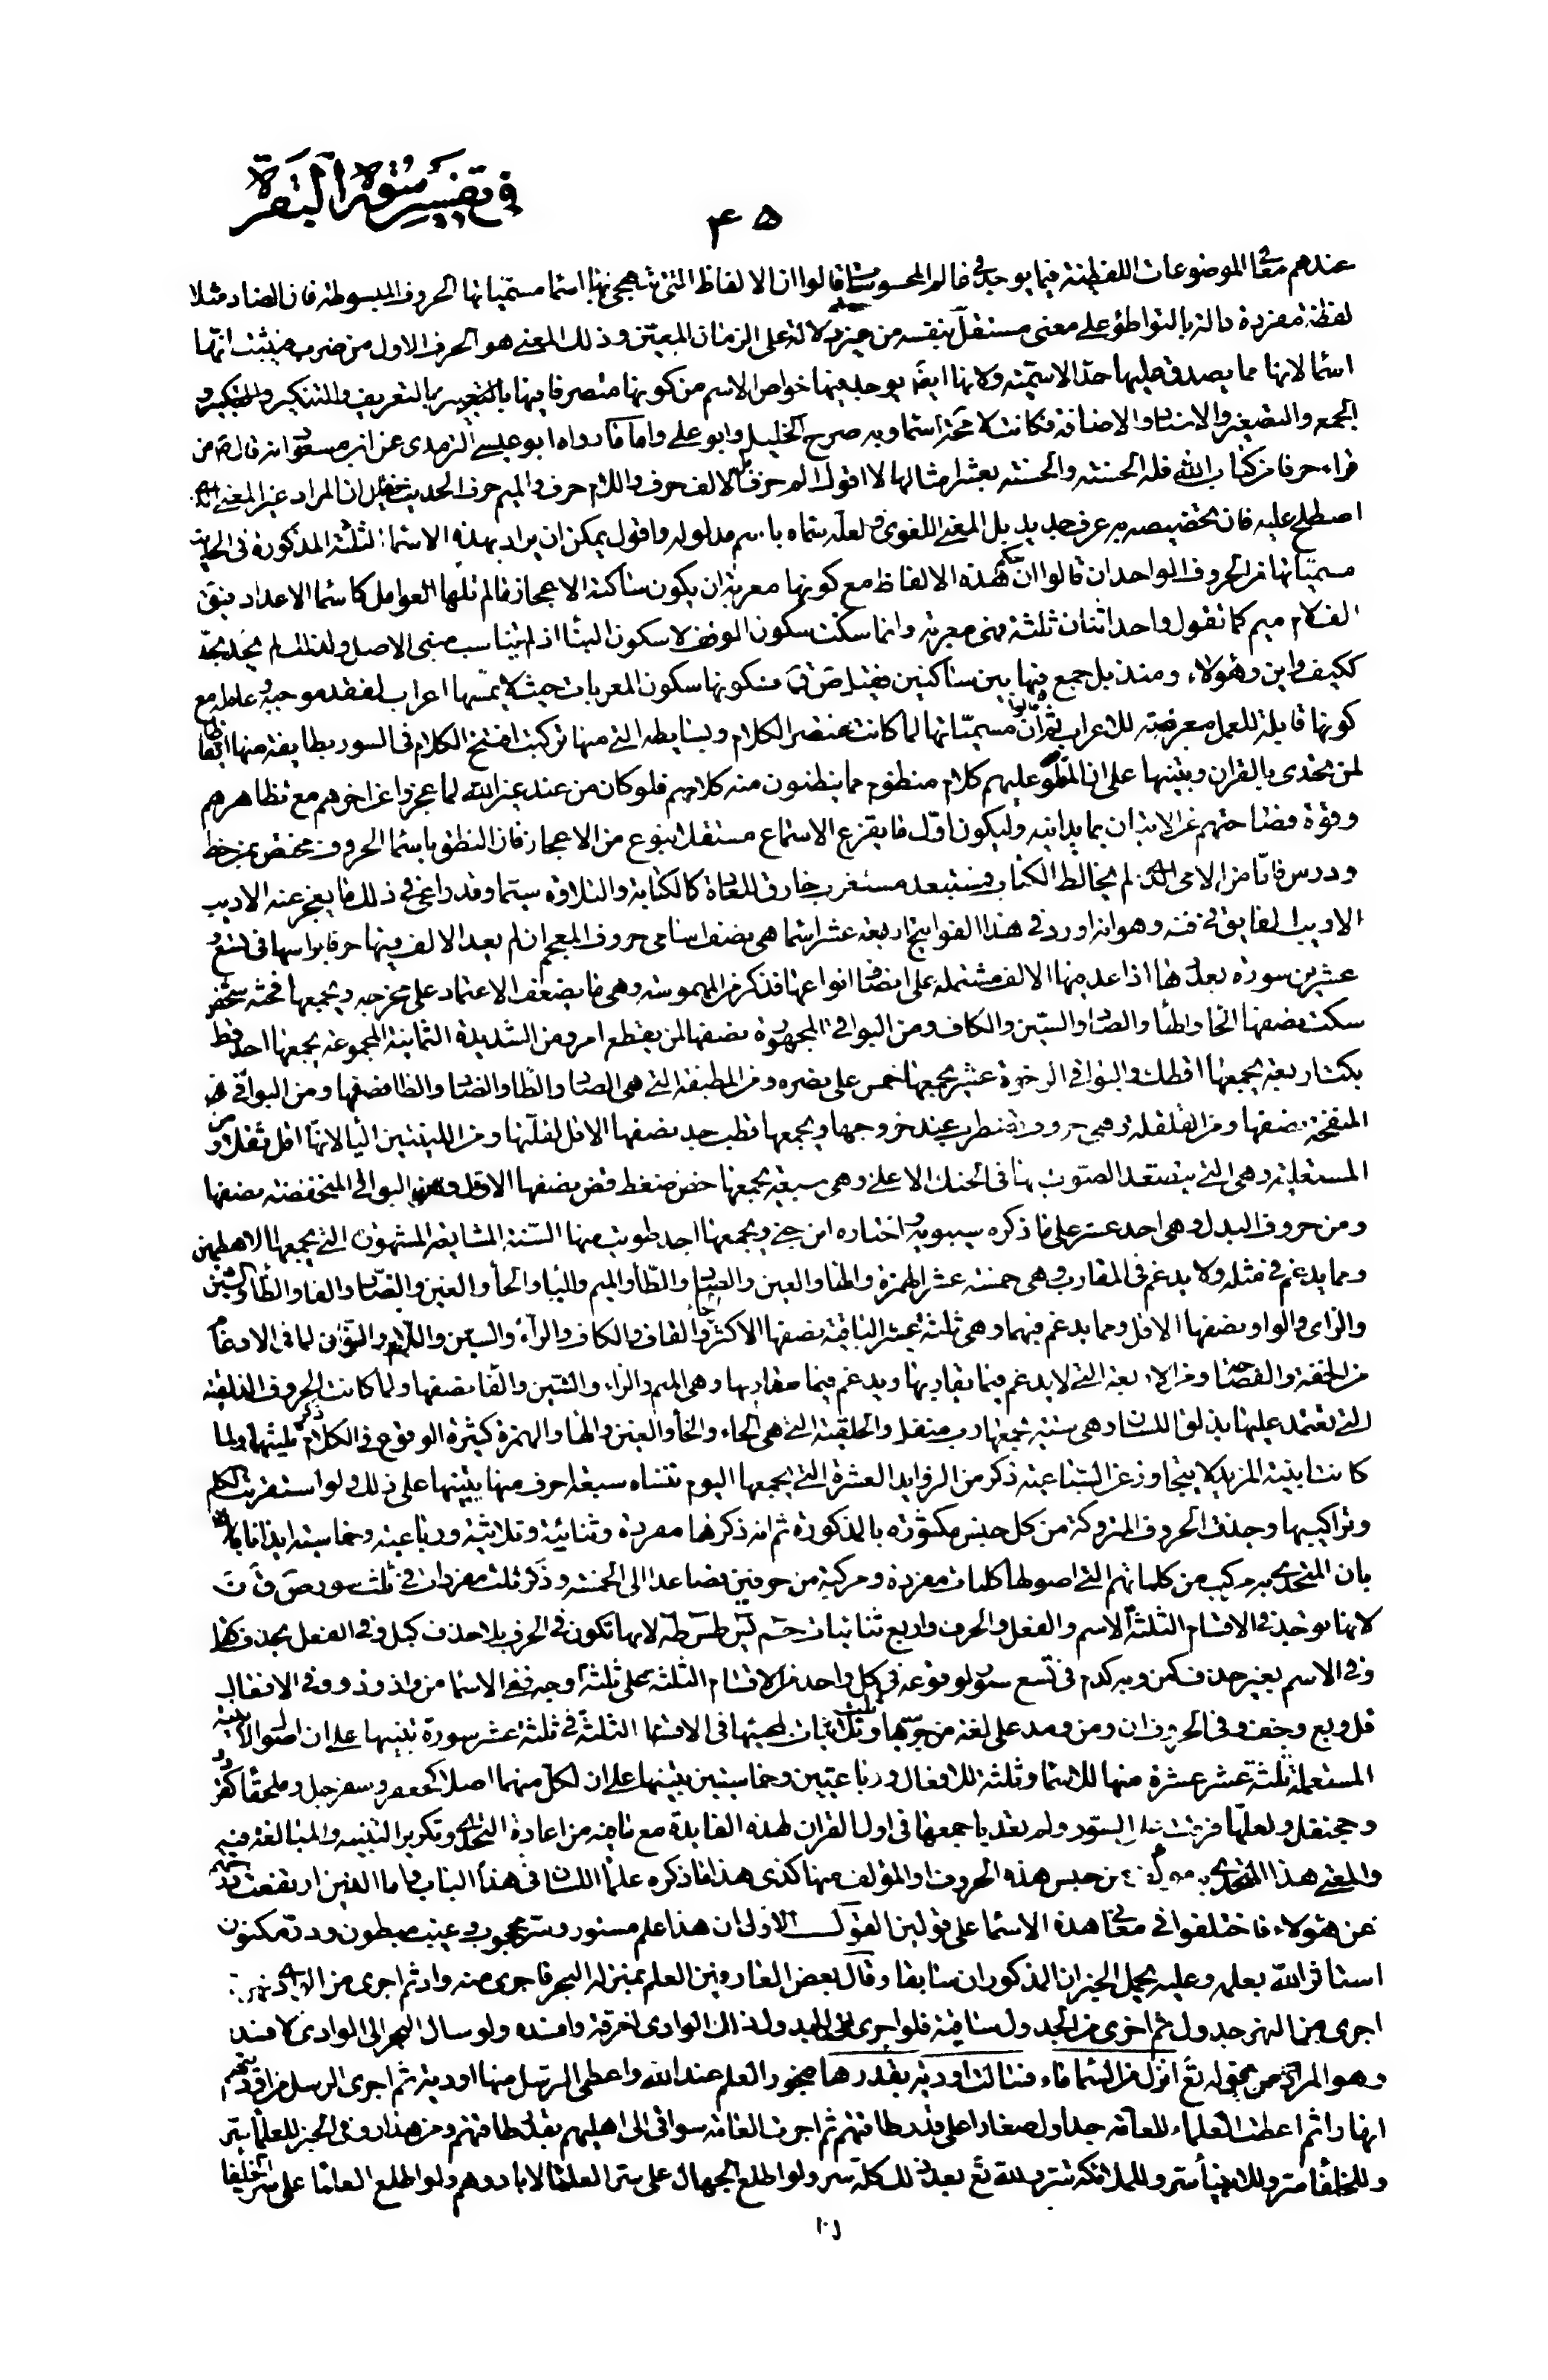 في تفسير سورة البقرة
۴۵
عندهم معاني الموضوعات اللفظية فيما يوجد في عالم المحسوسات قالوا ان الالفاظ التي يتهجى بها اسما مسمياتها الحروف المبسوطة فان الضاد مثلا
لفظة مفردة دالة بالتواطؤ على معنى مستقل بنفسه من غير دلالة على الزمان المعين وذلك المعنى هو الحرف الاول من ضرب فيثبت انها
اسما لانها مما يصدق عليها حد الاسمية ولانها ايضا يوجد فيها خواص الاسم من كونها متصرفا فيها بالتعريف والتنكير و
الجمع والتصغير والاسناد والاضافة فكانت لا محة اسما وبه صرح الخليل وابو علي واما ما رواه ابو عيسى الترمدى عن ابن مسعود انه قال ص من
قراء حرفا من كتاب الله فله الحسنة والحسنة بعشر امثالها لا اقول الم حرف بل الالف حرف واللام حرف والميم حرف الحديث فقيل ان المراد غير المعنى الذي
اصطلح عليه فان تخصيصه به عرف جديد بل المعنى اللغوى ولعله سماه باسم مدلوله واقول يمكن ان يراد بهذه الاسما الثلثة المذكورة في الحديث
مسمياتها من الحروف الواحدان قالوا ان حكم هذه الالفاظ مع كونها معربة ان يكون ساكنة الاعجاز ما لم تلها العوامل كاسما الاعداد فيق
الف لام ميم كما تقول واحد اثنان ثلثة فهي معربة وانما سكنت سكون الوقف لا سكون البنا اذ لم يتناسب مبنى الاصل ولذلك لم يحد بحد
ككيف واين وهؤلاء ومنذ بل جمع فيها بين ساكنين فقيل ص ق سكونها سكون المعربات حيث لا يمسها اعراب لفقد موجبه وعامله مع
كونها قابلة للعمل معرضة للاعراب ثم قالوا ان مسمياتها لما كانت عنصر الكلام وبسايطه التي منها تركبت افتتح الكلام في السور بطايفة منها ايقاظا
لمن تحدى بالقران وتنبيها على ان المتلو عليهم كلام منظوم مما ينظمون منه كلامهم فلو كان من عند غير الله لما عجزوا عن اخرهم مع تظاهرهم
وقوة فصاحتهم عن الاتيان بما يدانيه وليكون اول ما يقرع الاسماع مستقلا بنوع من الاعجاز فان النطق باسما الحروف مختص بمن خط
ودرس فاما من الامى الذي لم يخالط الكتاب فمستبعد مستغرب خارق للعادة كالكتابة والتلاوة سيما وقد راعى في ذلك ما يعجز عنه الاديب
الاريب الفايق في فنه وهو انه اورد في هذا الفواتح اربعة عشر اسما هي نصف اسامى حروف المعجم ان لم يعد الالف فيها حرفا براسها في تسع و
عشرين سورة بعددها اذا عد منها الالف مشتملة على انصاف انواعها فذكر من المهموسة وهي ما يضعف الاعتماد على مخرجه ويجمعها فحثه شخص
سكت نصفها الحا والها والصاد والسين والكاف ومن البواقى المجهورة نصفها لن يقطع امر ومن الشديدة الثمانية المجموعة يجمعها اجد قط
بكت اربعة يجمعها اقطك والبواقى الرخوة عشر يجمعها خمس على نصره ومن المطبقة التي هي الصاد والطا والضاد والظا نصفها ومن البواقى
المنفتحة نصفها ومن القلقلة وهي حروف تضطرب عند خروجها ويجمعها قطب جد نصفها الاقل لقلتها ومن اللينتين اليا لانها اقل ثقلا ومن
المستعلية وهي التي يتصعد الصوت بها في الحنك الاعلى وهي سبعة يجمعها خص ضغط قض نصفها الاقل ومن البواقى المنخفضة نصفها
ومن حروف البدل وهي احد عشر على ما ذكره سيبويه واختاره ابن جني ويجمعها اجد طويت منها الستة الشايعة المشهورة التي يجمعها اهطمين
ومما يدغم في مثله ولا يدغم في المقارب وهي خمسة عشر الهمزة والها والعين والصاد والطا والميم واليا والحا والغين والضاد والفا والظا والشين
والزاى والواو نصفها الاقل ومما يدغم فيهما وهي ثلثة عشر الباقية نصفها الاكثر الحا والقاف والكاف والرآء والسين واللام والنون لما في الادغام
من الخفة والفصاحة ومن الاربعة التي لا يدغم فيما يقاربها ويدغم فيما مقاربها وهي الميم والراء والشين والفا نصفها ولما كانت الحروف الذلقية
التي تعتمد عليها بذلق اللسان وهي ستة يجمعها رب منفل والحلقية التي هي الحاء والخا والعين والغين والها والهمزة كثيرة الوقوع في الكلام ذكر ثلثيها ولما
كانت ابنية المزيد لا يتجاوز عن السباعية ذكر من الزوايد العشرة التي يجمعها اليوم تنساه سبعة احرف منها تنبيها على ذلك ولو استقريت الكلم
وتراكيبها وجدت الحروف المتروكة من كل جنس مكثورة بالمذكورة ثم انه ذكرها مفردة وثنائية وثلاثية ورباعية وخماسية ايذانا
بان المتحدى به مركب من كلماتهم التي اصولها كلمات مفردة ومركبة من حرفين فصاعدا الى الخمسة وذكر ثلث مفردات في ثلث سور ص ق ن
لانها توجد في الاقسام الثلثة الاسم والفعل والحرف واربع ثنائيات حم يس طس طه لانها تكون في الحرف بلا حذف كبل وفي الفعل بحذف
وفي الاسم بغير حذف كمن وبه كدم في تسع سور لوقوعه في كل واحد من الاقسام الثلثة على ثلثة اوجه ففي الاسما من واذ وذو وفي الافعال
قل وبع وخف وفي الحروف ان ومن ومد على لغة من جر بها وثلث ثلاثيات لمجيئها في الاقسام الثلثة في ثلثة عشر سورة تنبيها على ان اصول الابنية
المستعملة ثلثة عشر عشرة منها للاسما وثلثة للافعال ورباعيتين وخماسيتين تنبيها على ان لكل منهما اصلا كجعفر وسفرجل وملحقا كقردد
وجحنفل ولعلها فرقت على السور ولم تعد باجمعها في اول القران لهذه الفايدة مع ما فيه من اعادة التحدى وتكرير التنبيه والمبالغة فيه
والمعنى هذا المتحدى به مولف من جنس هذه الحروف او المؤلف منها كذى هذا ما ذكره علما اللسان في هذا الباب واما الذين ارتفعت
عن هؤلاء فاختلفوا في معاني هذه الاسما على قولين القول الاول ان هذا علم مستور وسر محجوب وغيب مبطون ودرة مكنون
استاثر الله بعلمه وعليه يحمل الخبران المذكوران سابقا وقال بعض العارفين العلم بمنزلة البحر فاجرى منه واد ثم اجرى من الوادى نهر ثم
اجرى من النهر جدول ثم اجرى من الجدول ساقية فلو اجرى الى الجدول ذلك الوادى لغرقه وافسده ولو سال البحر الى الوادى لافسده
وهو المراد من قوله تع انزل من السما ماء فسالت اودية بقدرها فبحور العلم عند الله واعطى الرسل منها اودية ثم اجرى الرسل من اوديتهم
انهارا ثم اعطت العلماء للعامة جداول صغارا على قدر طاقتهم ثم اجرت العامة سواقى الى اهليهم بقدر طاقتهم ومن هذا روى في الخبر للعلما سر
وللخلفا سر وللانبيا سر وللملائكة سر ولله تع بعد ذلك كله سر ولو اطلع الجهال على سر العلما لابادوهم ولو اطلع العلما على سر الخلفا